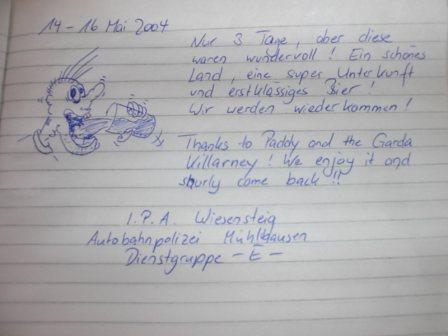 14 - 16 Mai 2004
Nur 3 Tage, aber diese
waren wundervoll! Ein schönes
Land, eine super Unterkunft
und erstklassiges Bier!
Wir werden wiederkommen!
Thanks to Paddy and the Garda
Killarney! We enjoy it and
shurly come back!!
I.P.A. Wiesensteig
Autobahnpolizei Mühlhausen
Dienstgruppe - E -